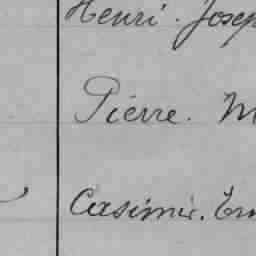 Henri. Josep
Pierre. M
Casimir. Em